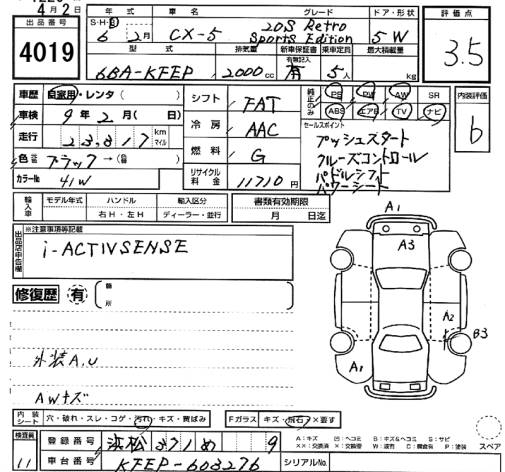 4月2日
出品番号
4019
年式 車名 グレード ドア・形状
S・H・R
6 2月 CX-5 20S Retro Sports Edition 5 W
型式 排気量 新車保証書 乗車定員 最大積載量
有無記入
6BA-KFEP 2000cc 有 5人 kg
評価点
3.5
車歴 自家用・レンタ( )
車検 9年2月( 日)
走行 23,817 km マイル
色 ブラック→(色替)
カラーNo 41W
シフト FAT
冷房 AAC
燃料 G
リサイクル料金 11710円
純正のみ
PS PW AW SR
ABS エアB TV ナビ
セールスポイント
プッシュスタート
クルーズコントロール
パドルシフト
パワーシート
内装評価
b
輸入車 モデル年式 ハンドル 輸入区分
年 右H・左H ディーラー・並行
書類有効期限
月 日迄
出品店申告欄
※注意事項等記載
i-ACTIVSENSE
修復歴 有 箇所
外装A,U
AWキズ
A1
A3
A2
B3
A1
内装シート 穴・破れ・スレ・コゲ・汚れ・キズ・黄ばみ
Fガラス キズ・飛石・×要す
A:キズ U:ヘコミ B:キズ&ヘコミ S:サビ
XX:交換済 X:交換要 W:波有 C:腐食有 P:塗装
スペア
検査員
11
登録番号 浜松 371 め 9
車台番号 KFEP-603276
シリアルNo.